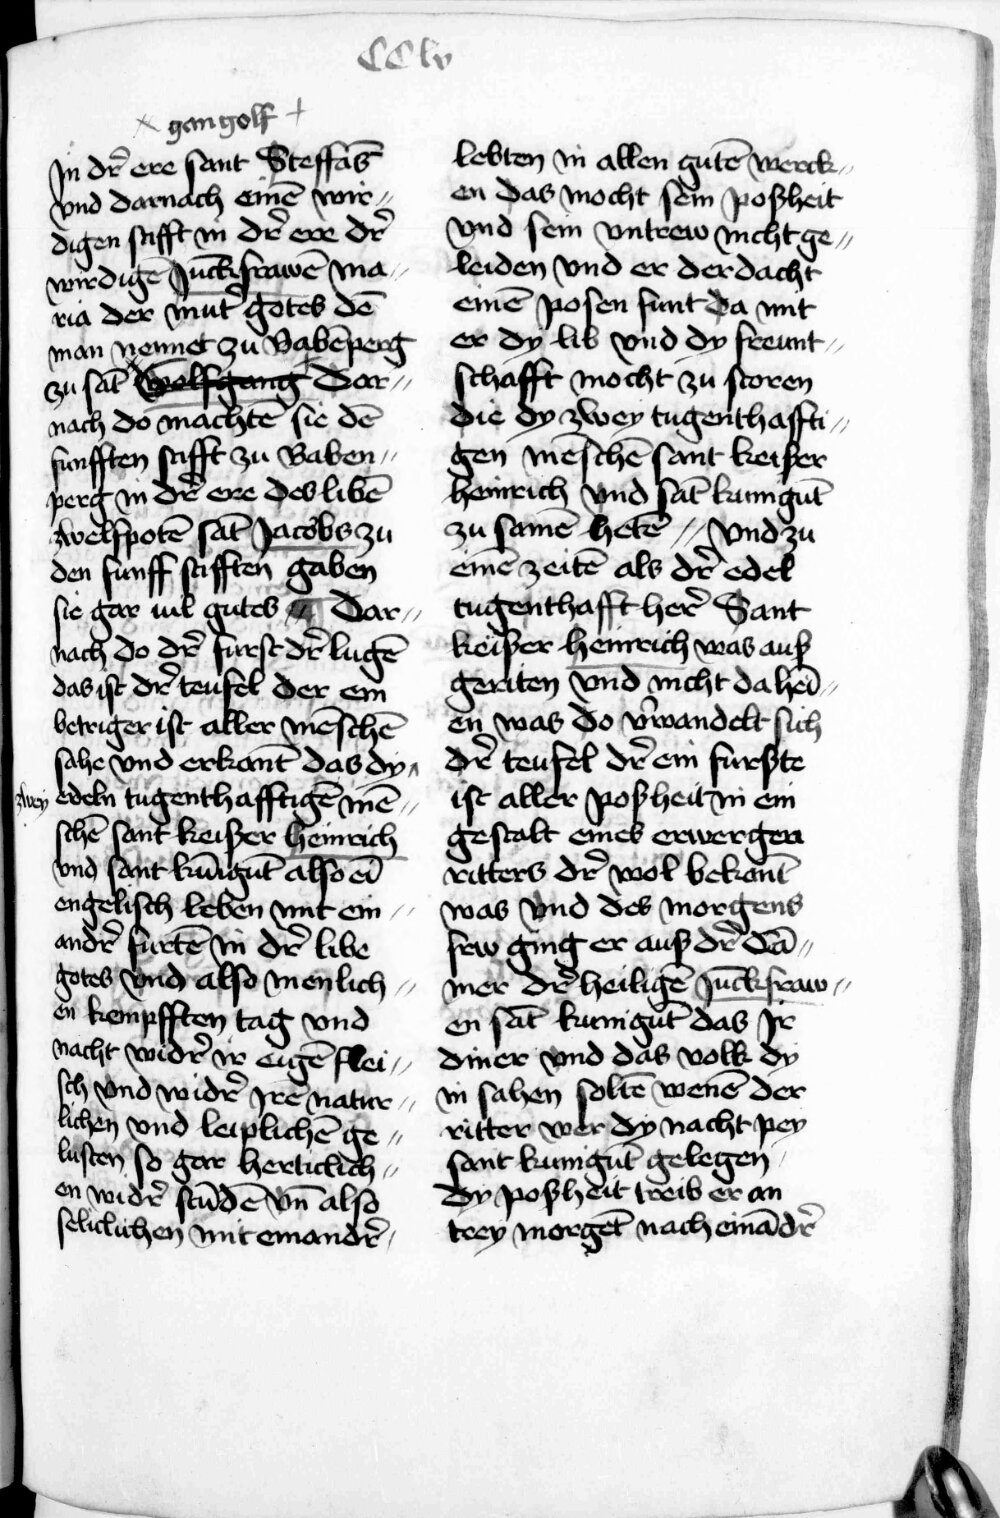 CClv
× gangolf +
In dr̄ ere sant Steffās
vnd darnach einē wir„
digen stifft in dr̄ ere dr̄
wirdigē Juckfrawē ma„
ria der mut̄ gotes dē
man nennet zu Babēperg
zu sāt wolfgang Dar„
nach do machtē sie dē
funfften stifft zu Baben„
perg in dr̄ ere des libē
zwelfpotē sāt Jacobs zu
den funff stifften gaben
sie gar uil gutes // Dar„
nach do dr̄ furst dr̄ lugē
das ist dr̄ teufel der ein
betriger ist aller mēschē
sahe vnd erkant das dy
zwey edeln tugenthafftigē mē„
schē sant keißer heinrich
vnd sant kūigūt also eī
engelisch leben mit ein„
andr̄ furtē in dr̄ libe
gotes vnd also menlich„
en kempfften tag vnd
nacht widr̄ ir eigē flei„
sch vnd widr̄ Jrē natur„
lichen vnd leiplichē ge„
lusten so gar herticlich„
en widr̄ stūdē vn̄ also
seliclichen mit einandr̄
lebten in allen gutē werck„
en das mocht sein poßheit
vnd sein vntrew nicht ge„
leiden vnd er derdacht
einē posen funt da mit
er dy lib vnd dy freunt„
schafft mocht zu storen
die dy zwey tugenthaffti„
gen mēschē sant keißer
heinrich vnd sāt kunigūt
zu samē hetē // Vnd zu
einē zeitē als dr̄ edel
tugenthafft her̄ Sant
keißer heinrich was auß
geriten vnd nicht da heī„
en was do v̄wandelt sich
dr̄ teufel dr̄ ein furste
ist aller poßheit in ein
gestalt eines erwergen
ritters dr̄ wol bekant
was vnd des morgens
frw ging er auß dr̄ kā„
mer dr̄ heiligē Juckfraw„
en sāt kunigūt das Jr
diner vnd das volk dy
in sahen soltē wenē der
ritter wer dy nacht pey
sant kunigūt gelegen
dy poßheit treib er an
trey morgēt nach einādr̄